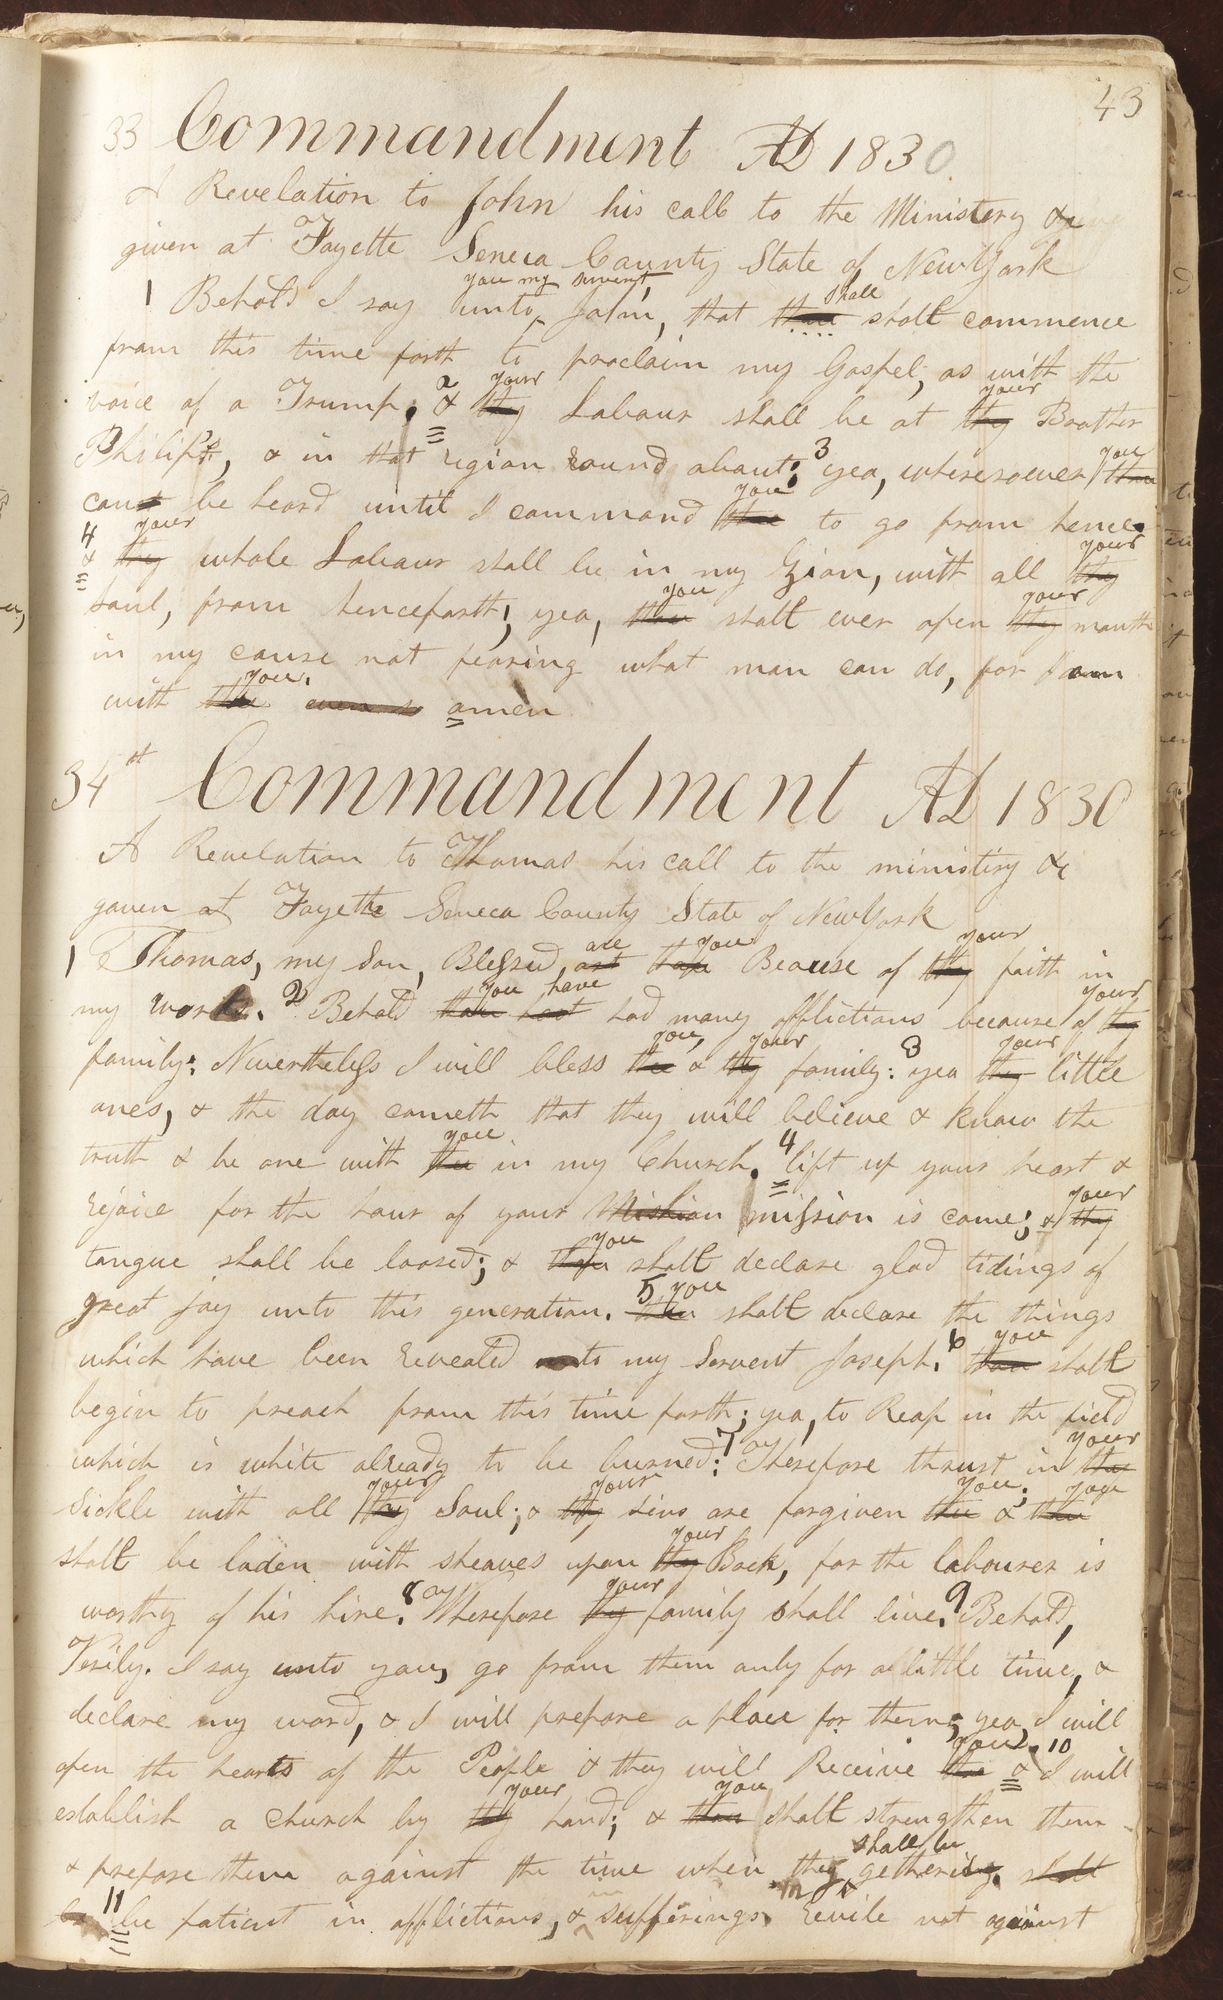 43
33 Commandment AD 1830
A Revelation to John his call to the Ministery &c
given at Fayette Seneca County State of New York
you my servent,
1 Behold I say unto John, that thou shall shalt commence
from this time forth to proclaim my Gospel, as with the
voice of a Trump. 2 & thy your Labour shall be at thy your Brother
Philip's, & in that region round about: 3 yea, wheresoever thou you
canst be heard until I command thee you to go from hence.
4 & thy your whole Labour shall be in my Zion, with all thy your
soul, from henceforth; yea, thou you shalt ever open thy your mouth
in my cause not fearing what man can do, for I am
with thee you. even so amen
34th Commandment AD 1830
A Revelation to Thomas his call to the ministiry &c
gaven at Fayette Seneca County State of New York
1 Thomas, my Son, Blessed, art are thou you Beause of thy your faith in
my work. 2 Behold thou you hast have had many afflictions because of thy your
family: Nevertheless I will bless thee you, & thy your family: 3 yea thy your little
ones, & the day cometh that they will believe & know the
truth & be one with thee you in my Church. 4 lift up your heart &
rejoice for the hour of your Mishion mission is come; & thy your
tongue shall be loosed; & thou you shalt declare glad tidings of
great joy unto this generation. 5 thou you shalt declare the things
which have been revealed unto my Servent Joseph. 6 thou you shalt
begin to preach from this time forth; yea, to Reap in the field
which is white already to be burned: 7 Therefore thrust in thy your
Sickle with all thy your Soul; & thy your sins are forgiven thee you; & thou you
shalt be laden with sheaves upon thy your Back, for the labourer is
worthy of his hire. 8 Wherefore thy your family shall live. 9 Behold,
Verily. I say unto you, go from them only for a little time, &
declare my word, & I will prepare a place for them; yea, I will
open the hearts of the People & they will Receive thee you. 10 & I will
establish a church by thy your hand; & thou you shalt strengthen them
& prepare them against the time when they shall be gethering. shall
be 11 be patient in afflictions, & in sufferings Revile not against